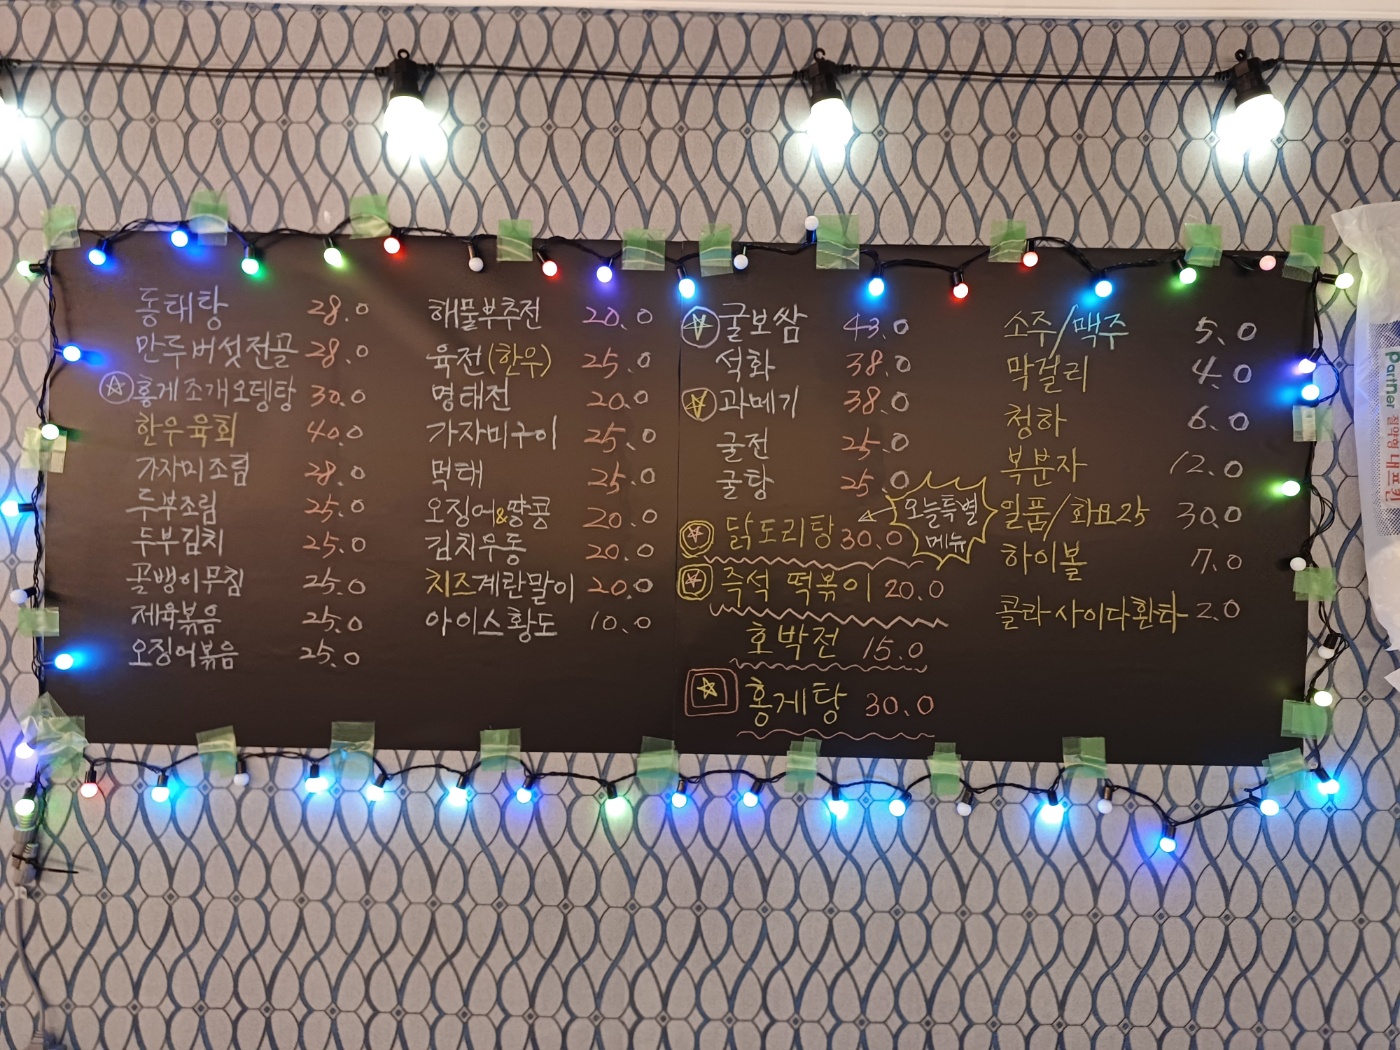 동태탕 28.0
만두버섯전골 28.0
홍게조개오뎅탕 30.0
한우육회 40.0
가자미조림 28.0
두부조림 25.0
두부김치 25.0
골뱅이무침 25.0
제육볶음 25.0
오징어볶음 25.0
해물부추전 20.0
육전(한우) 25.0
명태전 20.0
가자미구이 25.0
먹태 25.0
오징어&땅콩 20.0
김치우동 20.0
치즈계란말이 20.0
아이스황도 10.0
굴보쌈 43.0
석화 38.0
과메기 38.0
굴전 25.0
굴탕 25.0
오늘특별
메뉴
닭도리탕 30.0
즉석 떡볶이 20.0
호박전 15.0
홍게탕 30.0
소주/맥주 5.0
막걸리 4.0
청하 6.0
복분자 12.0
일품/화요25 30.0
하이볼 7.0
콜라 사이다 환타 2.0
Partner